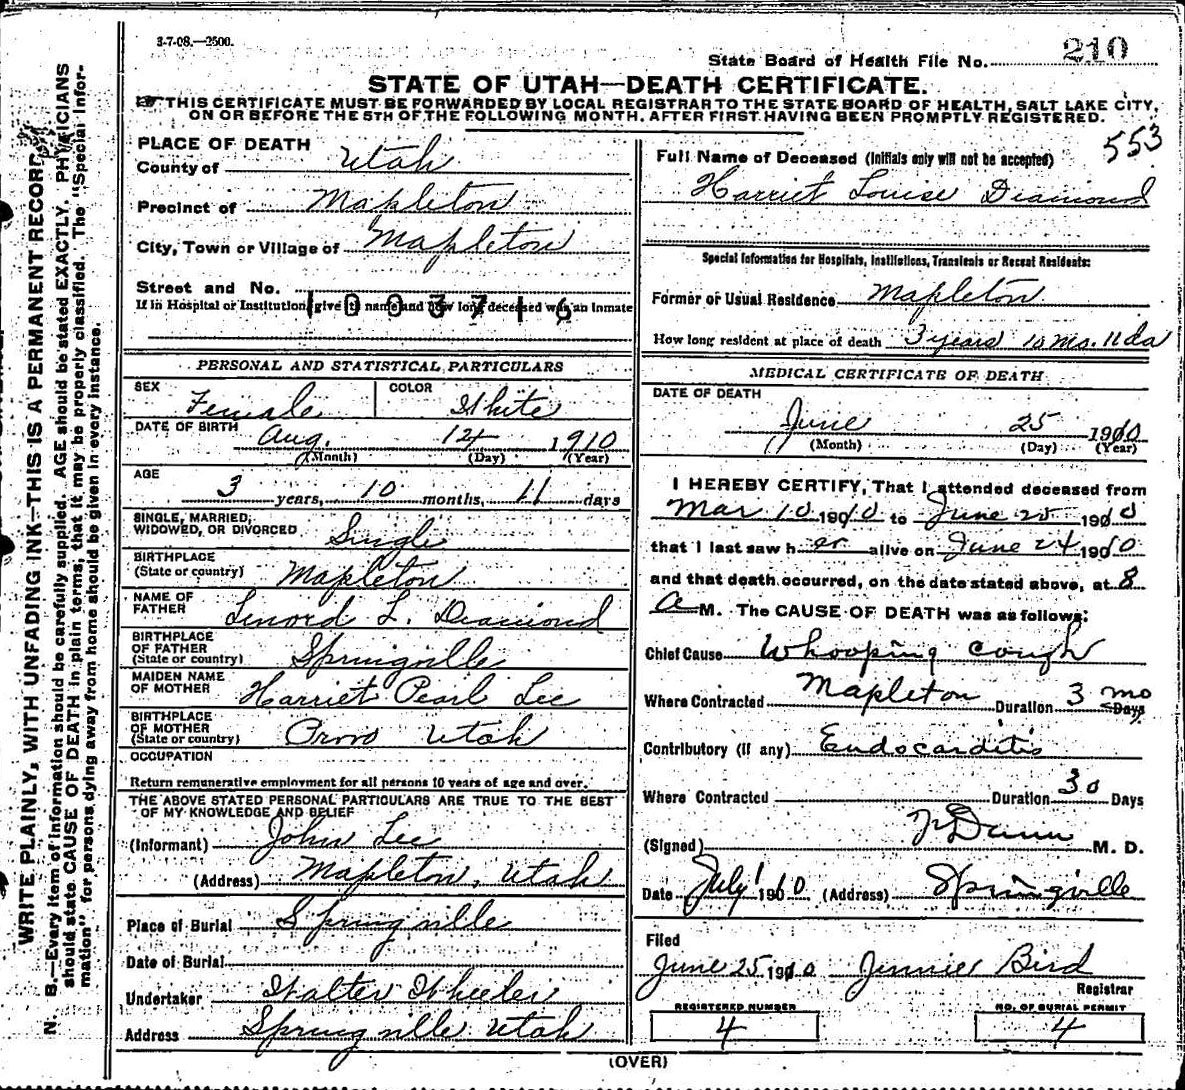 3-7-08.—2500.
State Board of Health File No. 210
STATE OF UTAH—DEATH CERTIFICATE.
THIS CERTIFICATE MUST BE FORWARDED BY LOCAL REGISTRAR TO THE STATE BOARD OF HEALTH, SALT LAKE CITY,
ON OR BEFORE THE 5TH OF THE FOLLOWING MONTH, AFTER FIRST HAVING BEEN PROMPTLY REGISTERED.
553
WRITE PLAINLY, WITH UNFADING INK—THIS IS A PERMANENT RECORD
N. B.—Every item of information should be carefully supplied. AGE should be stated EXACTLY. PHYSICIANS
should state CAUSE OF DEATH in plain terms, that it may be properly classified. The "Special Infor-
mation" for persons dying away from home should be given in every instance.
PLACE OF DEATH
County of Utah
Precinct of Mapleton
City, Town or Village of Mapleton
Street and No.
If in Hospital or Institution, give its name and how long deceased was an Inmate
1003716
PERSONAL AND STATISTICAL PARTICULARS
SEX Female COLOR White
DATE OF BIRTH Aug. 14 1910
(Month) (Day) (Year)
AGE
3 years, 10 months, 11 days
SINGLE, MARRIED,
WIDOWED, OR DIVORCED Single
BIRTHPLACE
(State or country) Mapleton
NAME OF
FATHER Lenord L. Diamond
BIRTHPLACE
OF FATHER
(State or country) Springville
MAIDEN NAME
OF MOTHER Harriet Pearl Lee
BIRTHPLACE
OF MOTHER
(State or country) Provo Utah
OCCUPATION
Return remunerative employment for all persons 10 years of age and over.
THE ABOVE STATED PERSONAL PARTICULARS ARE TRUE TO THE BEST
OF MY KNOWLEDGE AND BELIEF
(Informant) John Lee
(Address) Mapleton, Utah
Place of Burial Springville
Date of Burial
Undertaker Walter Wheeler
Address Springville Utah
Full Name of Deceased (Initials only will not be accepted)
Harriet Louise Diamond
Special Information for Hospitals, Institutions, Transients or Recent Residents:
Former or Usual Residence Mapleton
How long resident at place of death 3 years 10 mo. 11 da
MEDICAL CERTIFICATE OF DEATH
DATE OF DEATH
June 25 1910
(Month) (Day) (Year)
I HEREBY CERTIFY, That I attended deceased from
Mar 10 1910 to June 25 1910
that I last saw her alive on June 24 1910
and that death occurred, on the date stated above, at 8
a M. The CAUSE OF DEATH was as follows:
Chief Cause Whooping cough
Where Contracted Mapleton Duration 3 mo Days
Contributory (if any) Endocarditis
Where Contracted Duration 30 Days
(Signed) Dunn M. D.
Date July 1 1910 (Address) Springville
Filed
June 25 1910 Jennie Bird
Registrar
REGISTERED NUMBER
4
NO. OF BURIAL PERMIT
4
(OVER)